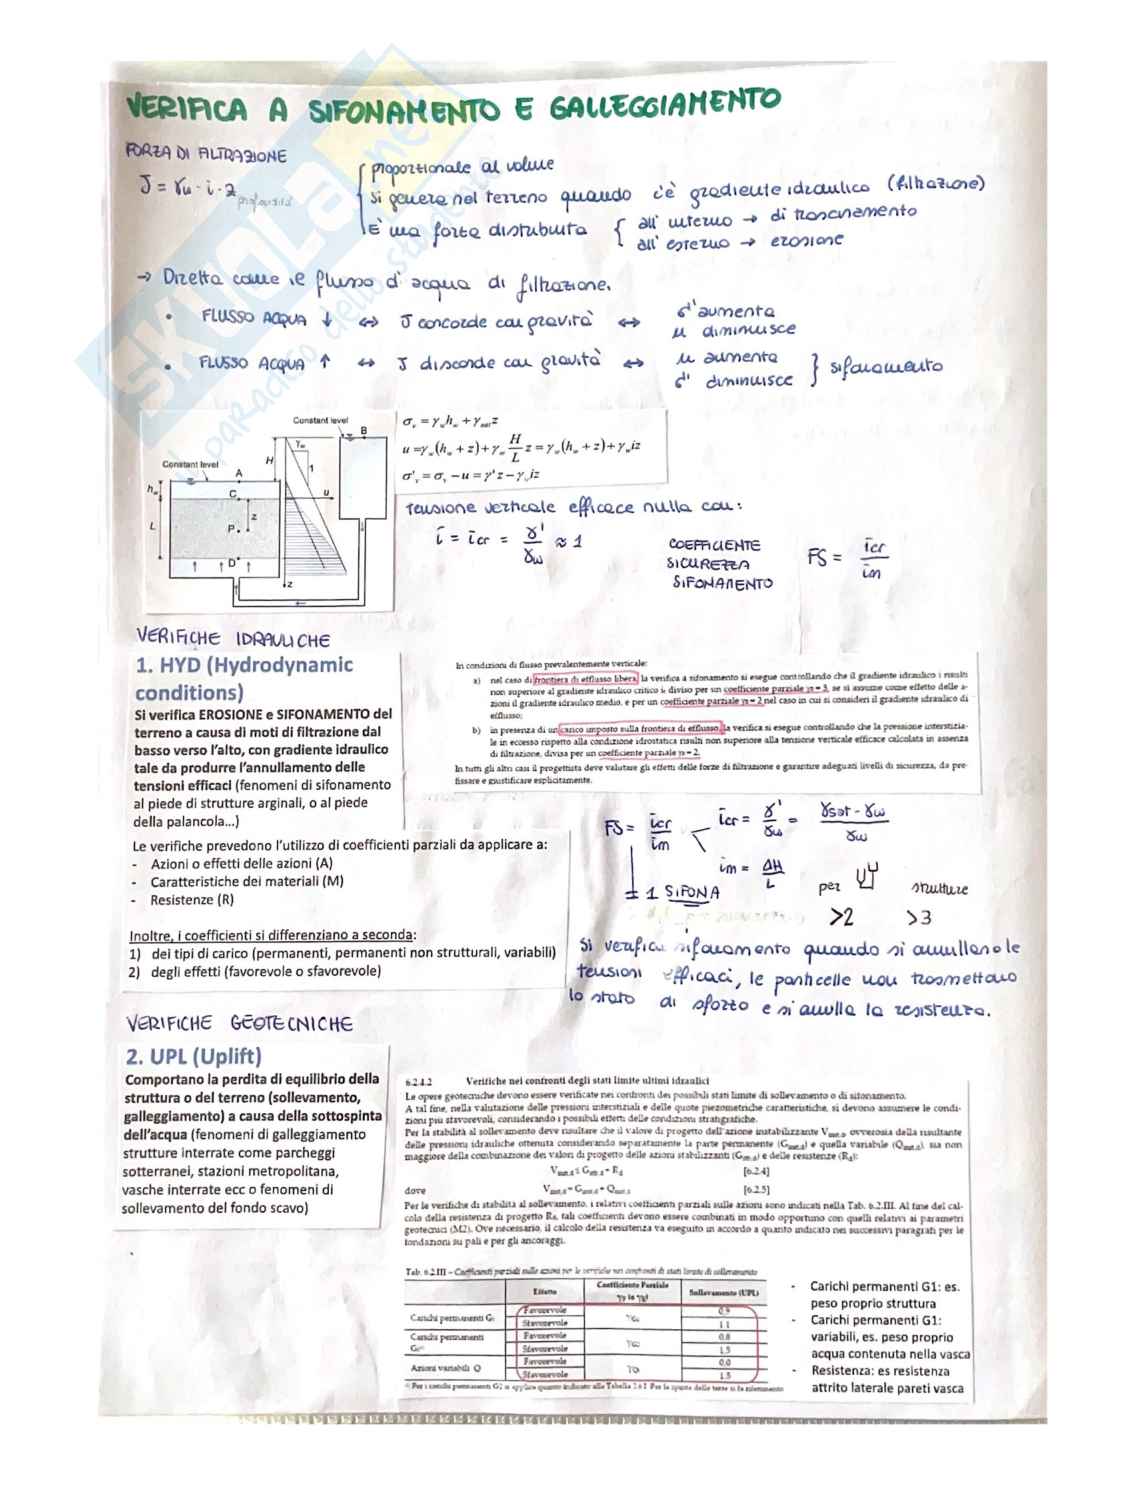 VERIFICA A SIFONAMENTO E GALLEGGIAMENTO
FORZA DI FILTRAZIONE
J = γw · i · z profondità
proporzionale al volume
si genera nel terreno quando c'è gradiente idraulico (filtrazione)
È una forza distribuita { all' interno → di trascinamento
all' esterno → erosione
→ Diretta come il flusso d' acqua di filtrazione.
• FLUSSO ACQUA ↓ ⇔ J concorde con gravità ⇔ σ' aumenta
u diminuisce
• FLUSSO ACQUA ↑ ⇔ J discorde con gravità ⇔ u aumenta
σ' diminuisce } sifonamento
Constant level
B
Constant level
A
H
γw
1
hw
C
u
z
L
P
D
z
σv = γw hw + γsat z
u = γw(hw + z) + γw H/L z = γw(hw + z) + γw iz
σ'v = σv − u = γ' z − γw iz
tensione verticale efficace nulla con:
i = icr = γ'/γw ≈ 1
COEFFICIENTE
SICUREZZA
SIFONAMENTO
FS = icr/im
VERIFICHE IDRAULICHE
1. HYD (Hydrodynamic
conditions)
Si verifica EROSIONE e SIFONAMENTO del
terreno a causa di moti di filtrazione dal
basso verso l'alto, con gradiente idraulico
tale da produrre l'annullamento delle
tensioni efficaci (fenomeni di sifonamento
al piede di strutture arginali, o al piede
della palancola...)
In condizioni di flusso prevalentemente verticale:
a) nel caso di frontiera di efflusso libera, la verifica a sifonamento si esegue controllando che il gradiente idraulico i risulti
non superiore al gradiente idraulico critico ic diviso per un coefficiente parziale γR = 3, se si assume come effetto delle a-
zioni il gradiente idraulico medio, e per un coefficiente parziale γR = 2 nel caso in cui si consideri il gradiente idraulico di
efflusso;
b) in presenza di un carico imposto sulla frontiera di efflusso, la verifica si esegue controllando che la pressione interstizia-
le in eccesso rispetto alla condizione idrostatica risulti non superiore alla tensione verticale efficace calcolata in assenza
di filtrazione, divisa per un coefficiente parziale γR = 2.
In tutti gli altri casi il progettista deve valutare gli effetti delle forze di filtrazione e garantire adeguati livelli di sicurezza, da pre-
fissare e giustificare esplicitamente.
Le verifiche prevedono l'utilizzo di coefficienti parziali da applicare a:
- Azioni o effetti delle azioni (A)
- Caratteristiche dei materiali (M)
- Resistenze (R)
Inoltre, i coefficienti si differenziano a seconda:
1) dei tipi di carico (permanenti, permanenti non strutturali, variabili)
2) degli effetti (favorevole o sfavorevole)
FS = icr/im
icr = γ'/γw = γsat - γw/γw
im = ΔH/L
= 1 SIFONA
per
strutture
>2
>3
Si verifica sifonamento quando si annullano le
tensioni efficaci, le particelle non trasmettono
lo stato di sforzo e si annulla la resistenza.
VERIFICHE GEOTECNICHE
2. UPL (Uplift)
Comportano la perdita di equilibrio della
struttura o del terreno (sollevamento,
galleggiamento) a causa della sottospinta
dell'acqua (fenomeni di galleggiamento
strutture interrate come parcheggi
sotterranei, stazioni metropolitana,
vasche interrate ecc o fenomeni di
sollevamento del fondo scavo)
6.2.4.2 Verifiche nei confronti degli stati limite ultimi idraulici
Le opere geotecniche devono essere verificate nei confronti dei possibili stati limite di sollevamento o di sifonamento.
A tal fine, nella valutazione delle pressioni interstiziali e delle quote piezometriche caratteristiche, si devono assumere le condi-
zioni più sfavorevoli, considerando i possibili effetti delle condizioni stratigrafiche.
Per la stabilità al sollevamento deve risultare che il valore di progetto dell'azione instabilizzante Vinst,d ovverosia della risultante
delle pressioni idrauliche ottenuta considerando separatamente la parte permanente (Ginst,d) e quella variabile (Qinst,d), sia non
maggiore della combinazione dei valori di progetto delle azioni stabilizzanti (Gstb,d) e delle resistenze (Rd):
Vinst,d ≤ Gstb,d + Rd [6.2.4]
dove Vinst,d = Ginst,d + Qinst,d [6.2.5]
Per le verifiche di stabilità al sollevamento, i relativi coefficienti parziali sulle azioni sono indicati nella Tab. 6.2.III. Al fine del cal-
colo della resistenza di progetto Rd, tali coefficienti devono essere combinati in modo opportuno con quelli relativi ai parametri
geotecnici (M2). Ove necessario, il calcolo della resistenza va eseguito in accordo a quanto indicato nei successivi paragrafi per le
fondazioni su pali e per gli ancoraggi.
Tab. 6.2.III – Coefficienti parziali sulle azioni per le verifiche nei confronti di stati limite di sollevamento
Effetto Coefficiente Parziale γF (o γE) Sollevamento (UPL)
Carichi permanenti G1 Favorevole γG1 0,9
Sfavorevole 1,1
Carichi permanenti G2(1) Favorevole γG2 0,8
Sfavorevole 1,5
Azioni variabili Q Favorevole γQi 0,0
Sfavorevole 1,5
(1) Per i carichi permanenti G2 si applica quanto indicato alla Tabella 2.6.I. Per la spinta delle terre si fa riferimento
- Carichi permanenti G1: es.
peso proprio struttura
- Carichi permanenti G1:
variabili, es. peso proprio
acqua contenuta nella vasca
- Resistenza: es resistenza
attrito laterale pareti vasca
SKUOLA.net
il paradiso dello studente